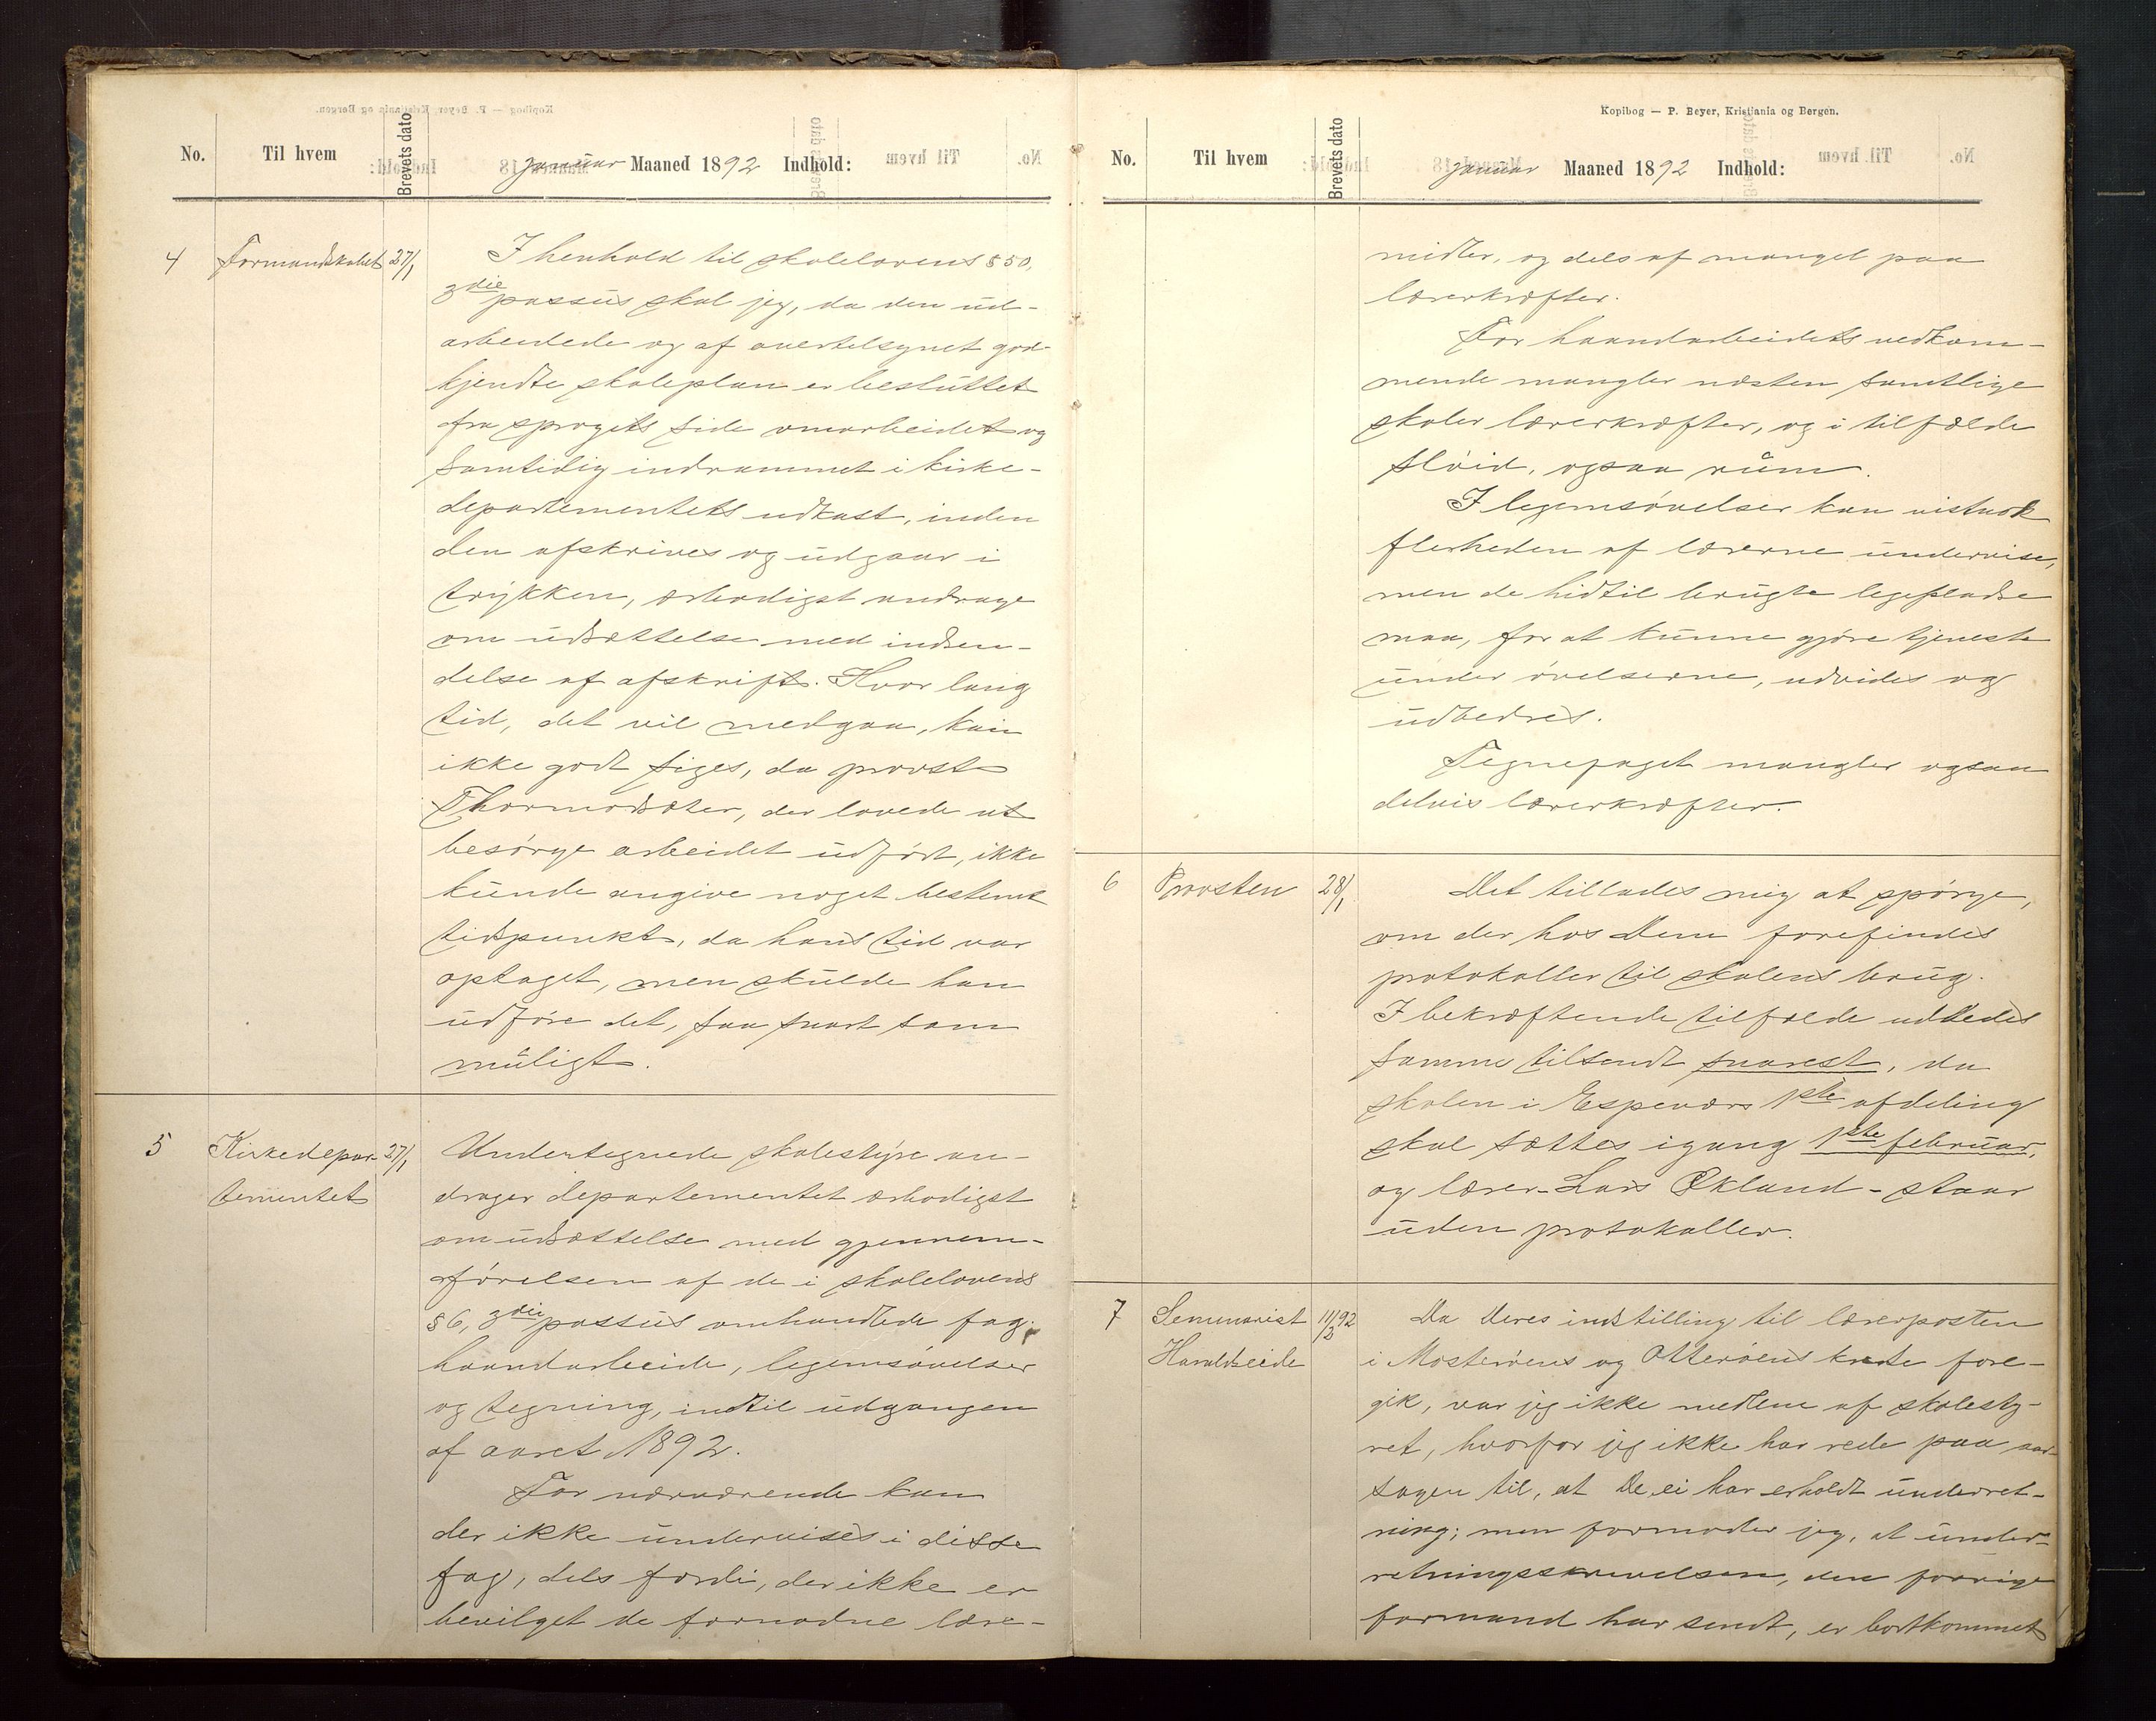 No. Til hvem Brevets dato januar Maaned 1892 Indhold:
4 Formandskabet 27/1 I henhold til skolelovens § 50,
3die passus skal jeg, da den ud-
arbeidede og af overtilsynet god-
kjendte skoleplan er besluttet
fra sprogets side omarbeidet og
samtidig indrammet i kirke-
departementets udkast, inden
den afskrives og udgaar i
trykken, ærbødigst andrage
om udsættelse med indsen-
delse af afskrift. Hvor lang
tid, det vil medgaa, kan
ikke godt siges, da provst
Thormodsæter, der lovede at
besørge arbeidet udført, ikke
kunde angive noget bestemt
tidspunkt, da hans tid var
optaget, men skulde han
udføre det, saa snart som
muligt.
5 Kirkedepar- 27/1 Undertegnede skolestyre an-
tementet drager departementet ærbødigst
om udsættelse med gjennem-
førelsen af de i skolelovens
§ 6, 3die passus omhandlede fag:
haandarbeide, legemsøvelser
og tegning, indtil udgangen
af aaret 1892.
For nærværende kan
der ikke undervises i disse
fag, dels fordi, der ikke er
bevilget de fornødne lære-
Kopibog — P. Beyer, Kristiania og Bergen.
No. Til hvem Brevets dato januar Maaned 1892 Indhold:
midler, og dels af mangel paa
lærerkræfter.
For haandarbeidets vedkom-
mende mangler næsten samtlige
skoler lærerkræfter, og i tilfælde
sløid, ogsaa rum.
I legemsøvelser kan vistnok
flerheden af lærerne undervise,
men de hidtil brugte legepladse
maa, for at kunne gjøre tjeneste
under øvelserne, udvides og
udbedres.
Tegnefaget mangler ogsaa
delvis lærerkræfter.
6 Provsten 28/1 Det tillades mig at spørge,
om der hos Dem forefindes
protokoller til skolens brug.
I bekræftende tilfælde udbedes
samme tilsendt snarest, da
skolen i Espevær 1ste afdeling
skal sættes igang 1ste februar,
og lærer - Lars Økland - staar
uden protokoller.
7 Seminarist 11/2 92 Da Deres indstilling til lærerposten
Haraldseide i Mosterøens og Otterøens kreds fore-
gik, var jeg ikke medlem af skolesty-
ret, hvorfor jeg ikke har rede paa aar-
sagen til, at De ei har erholdt underret-
ning; men formoder jeg, at under-
retningsskrivelsen, den forrige
formand har sendt, er bortkommet